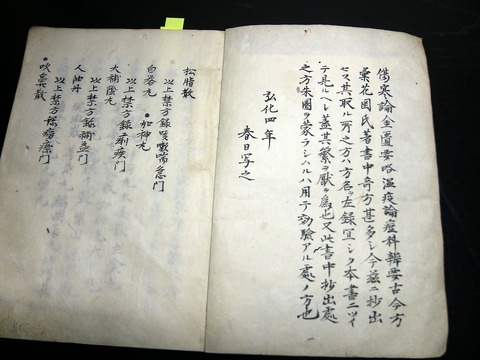 傷寒論金匱要略温疫論痘科辨要古今方
彙花岡氏著書中奇方甚多シ今茲ニ抄出
セス其取ル所之方ハ方名ヲ左録宜シク本書ニツイ
テ見ルヘシ蓋其繁ヲ厭カ為也又此書中抄出處
之方朱圏ヲ蒙ラシハルハ用テ効驗アル處ノ方也
弘化四年
春日写之
松脂散
以上禁方録咳嗽喘急門
白答丸 如神丸
以上禁方録痢疾門
大補陰丸
以上禁方録補益門
人油丹
以上禁方録癆瘵門
吹鼻散